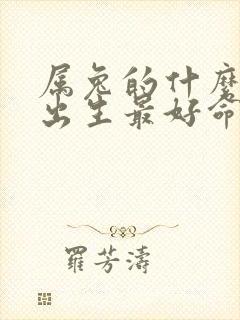 属兔的什麼
出生最好命
羅芳濤